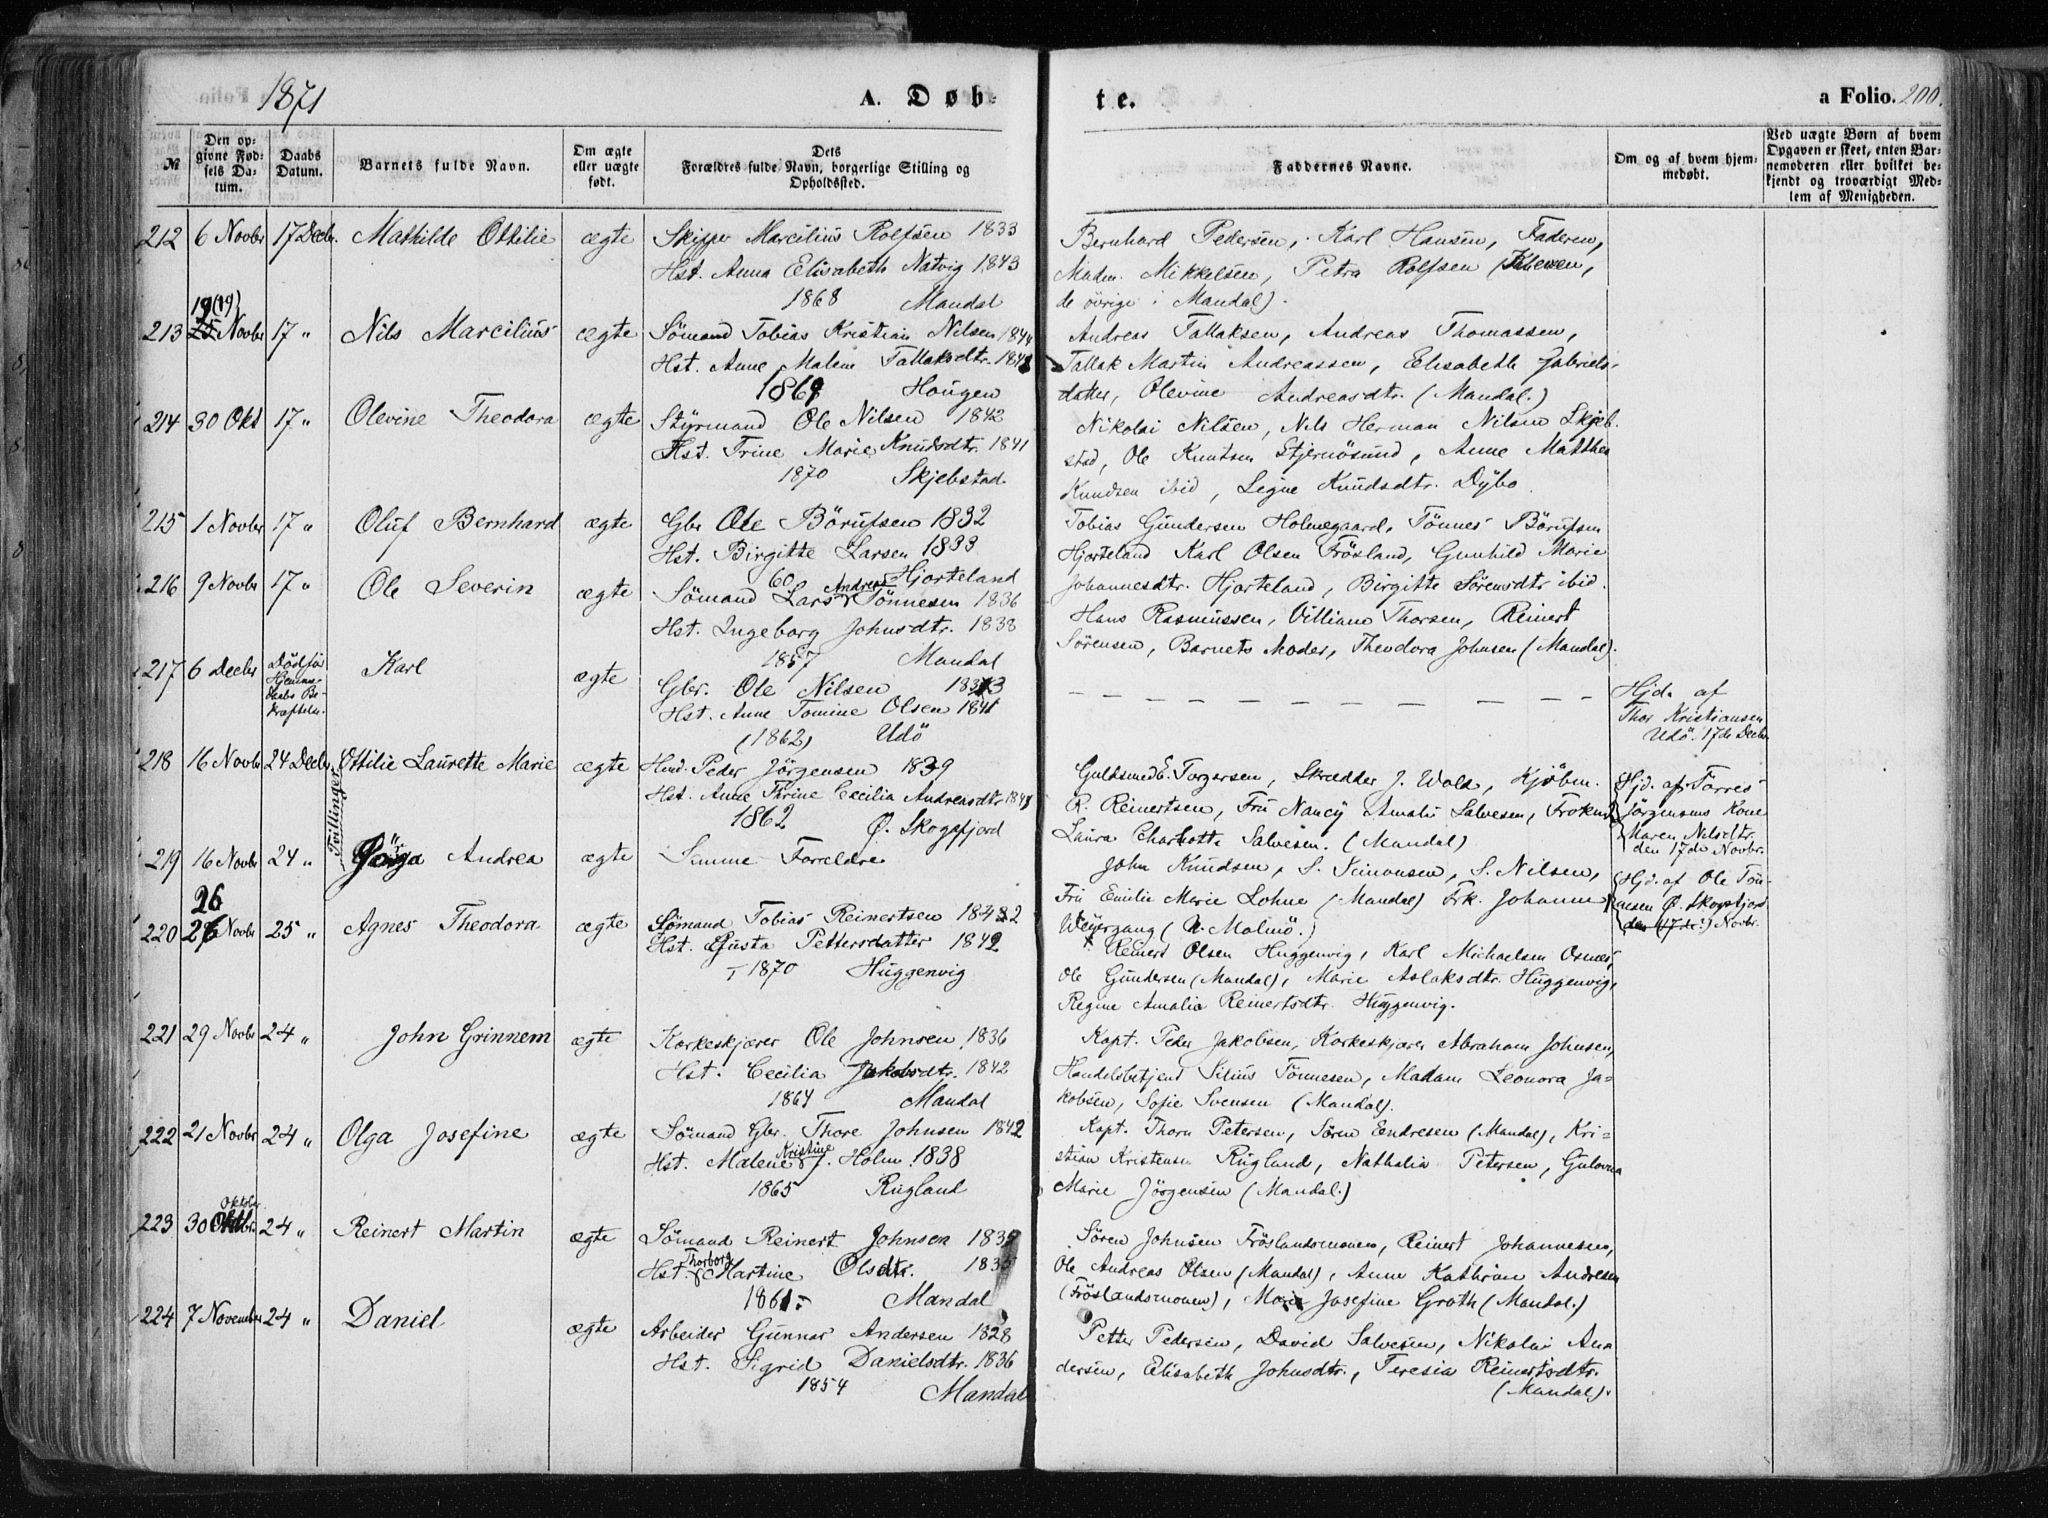 1871
A. Døb-
te.
a Folio. 200.
№
Den op-
givne Fød-
sels Da-
tum.
Daabs
Datum.
Barnets fulde Navn.
Om ægte
eller uægte
født.
Dets
Forældres fulde Navn, borgerlige Stilling og
Opholdssted.
Faddernes Navne.
Om og af hvem hjem-
medøbt.
Ved uægte Børn af hvem
Opgaven er skeet, enten Bar-
nemoderen eller hvilket be-
kjendt og troværdigt Med-
lem af Menigheden.
212 6 Novbr 17 Decbr. Mathilde Othilie ægte Skipper Marcilius Rolfsen 1833
Hst. Anna Elisabeth Natvig 1843
1868 Mandal
Bernhard Pedersen, Karl Hansen, Faderen,
Madm. Mikkelsen, Petra Rolfsen
de övrige i Mandal).
19 (19)
213 Novbr 17 " Nils Marcilius ægte Sømand Tobias Kristian Nilsen 1844
Hst. Anne Malene Tallaksdtr. 1848
1869 Hougen
Andreas Tallaksen, Andreas Thomassen,
Tallak Martin Andreassen, Elisabeth Gabriels-
datter, Olevine Andreasdtr. (Mandal.)
214 30 Okt 17 " Olevine Theodora ægte Styrmand Ole Nilsen 1842
Hst. Trine Marie Knudsdtr. 1841
1870 Skjebstad
Nikolai Nilsen, Nils Herman Nilsen Skjeb-
stad, Ole Knutsen Stjernösund, Anne Matthea
Knudsen ibid, Signe Knudsdtr. Dybo
215 1 Novbr 17 " Oluf Bernhard ægte Gbr Ole Börufsen 1832
Hst. Birgitte Larsen 1833
60 Hjorteland
Tobias Gundersen Holmegaard, Tönnes Börufsen
Hjorteland Karl Olsen Frösland, Gunhild Marie
Johannesdtr. Hjorteland, Birgitte Sörensdtr ibid.
216 9 Novbr 17 " Ole Severin ægte Sömand Lars Andreas Tönnesen 1836
Hst. Ingeborg Johnsdtr. 1838
1857 Mandal
Hans Rasmussen, Villiam Thorsen, Reinert
Sörensen, Barnets Moder, Theodora Johnsen (Mandal).
217 6 Decbr Död för
Hjemme-
daabs Be-
kræfteln.
Karl ægte Gbr. Ole Nilsen 1833
Hst. Anne Tomine Olsen 1841
(1862) Udö
Hjd. af
Thor Kristiansen
Udö. 17de Decbr
218 16 Novbr 24 Decbr Ottilie Laurette Marie ægte Hmd. Peder Jörgensen 1839
Hst. Anne Thrine Cecilia Andreasdtr 1843
1862 Ø. Skogsfjord
Tvillinger
Guldsmed E. Torgersen, Skrædder J. Wold, Kjöbm.
R. Reinertsen, Fru Nancy Amalie Salvesen, Fröken
Laura Charlotte Salvesen. (Mandal)
Hjd. af Torres
Jörgensens Kone
Karen Nilsdtr.
den 17de Novbr.
219 16 Novbr 24 " Andrea ægte Samme Foreldre
John Knudsen, S. Simonsen, S. Nilsen,
Fru Emilie Marie Lohne (Mandal) Frk. Johanne
Weyergang (N. Malmö.)
Hjd. af Ole Tön-
nesen Ø. Skogsfjord
den (17de) Novbr.
26
220 26 Novbr 25 " Agnes Theodora ægte Sömand Tobias Reinertsen 1842
Hst. Gusta Pettersdatter 1842
1870 Huggenvig
Reinert Olsen Huggenvig, Karl Michaelsen Osnes,
Ole Gundersen (Mandal), Marie Aslaksdtr. Huggenvig,
Regine Amalia Reinertsdtr. Huggenvig.
221 29 Novbr 24 " John Grinnem ægte Korkeskjærer Ole Johnsen 1836
Hst. Cecilia Jakobsdtr. 1842
1864 Mandal
Kapt. Peder Jakobsen, Korkeskjærer Abraham Johnsen,
Handelsbetjent Silius Tönnesen, Madam Leonora Ja-
kobsen, Sofie Svensen (Mandal).
222 21 Novbr 24 " Olga Josefine ægte Sömand Gbr. Thore Johnsen 1842
Hst. Malene Kristine J. Holm 1838
1865 Rugland
Kapt. Thorn Petersen, Sören Endresen (Mandal), Kri-
stian Kristensen Rugland, Nathalia Petersen, Gulovna
Marie Jörgensen (Mandal.)
223 30 Oktober 24 " Reinert Martin ægte Sömand Reinert Johnsen 1835
Hst. Thorborg Martine Olsdtr. 1835
1861 Mandal
Sören Johnsen Fröslandsmonen, Reinert Johannesen,
Ole Andreas Olsen (Mandal), Anne Kathrine Andresen
(Fröslandsmonen), Marie Josefine Groth (Mandal.)
224 7 November 24 " Daniel ægte Arbeider Gunnar Andersen 1828
Hst. Sigrid Danielsdtr. 1836
1854 Mandal
Petter Pedersen, David Salvesen, Nikolai An-
dersen, Elisabeth Johnsdtr., Teresia Reinertsdtr.
(Mandal).